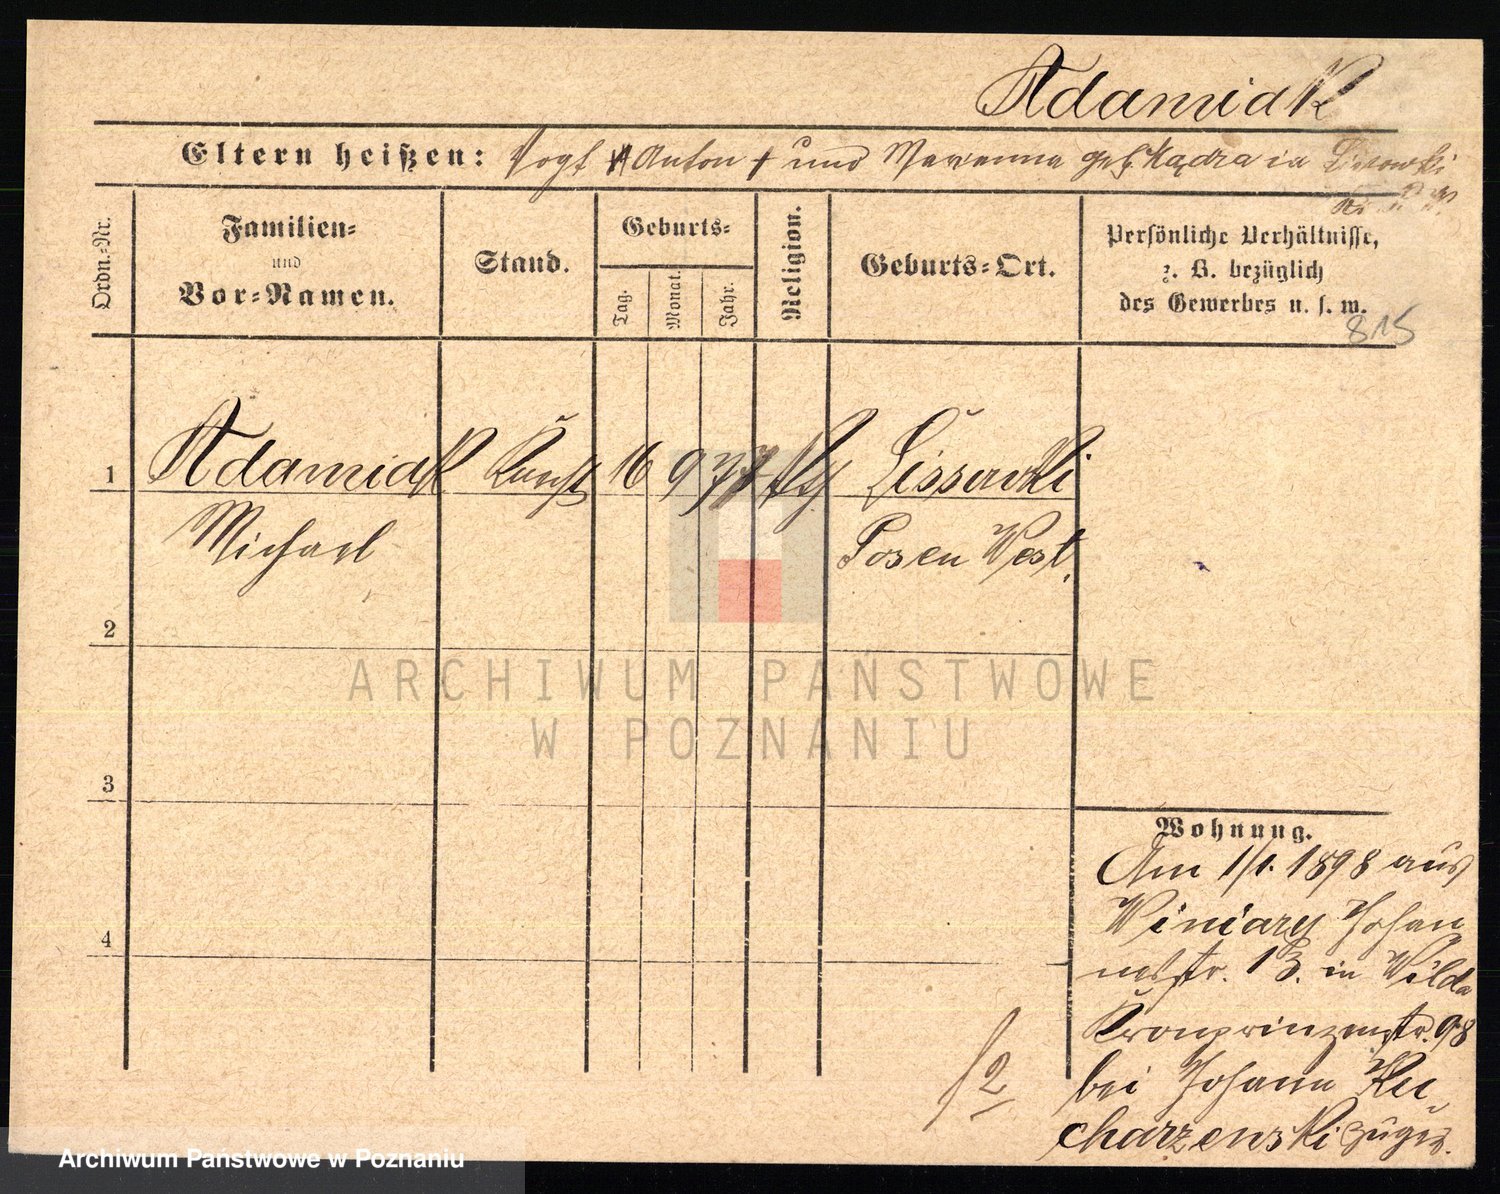 Adamiak
Eltern heißen: Vogt Anton † und Maryanna geb. Kądra in
Ordn.-Nr.
Familien-
und
Vor-Namen.
Stand.
Geburts-
Tag.
Monat.
Jahr.
Religion.
Geburts-Ort.
Persönliche Verhältnisse,
z. B. bezüglich
des Gewerbes u. s. w.
815
1 Adamiak 16 9 77 Lissewki
Michael
Posen West.
2
3
4
Wohnung.
Am 1/1. 1898 aus
Winiary Johan
nisstr. 13. in Wilda
Kronprinzenstr. 98
bei Johann Ku-
charzewski zugez.
2
ARCHIWUM PAŃSTWOWE
W POZNANIU
Archiwum Państwowe w Poznaniu